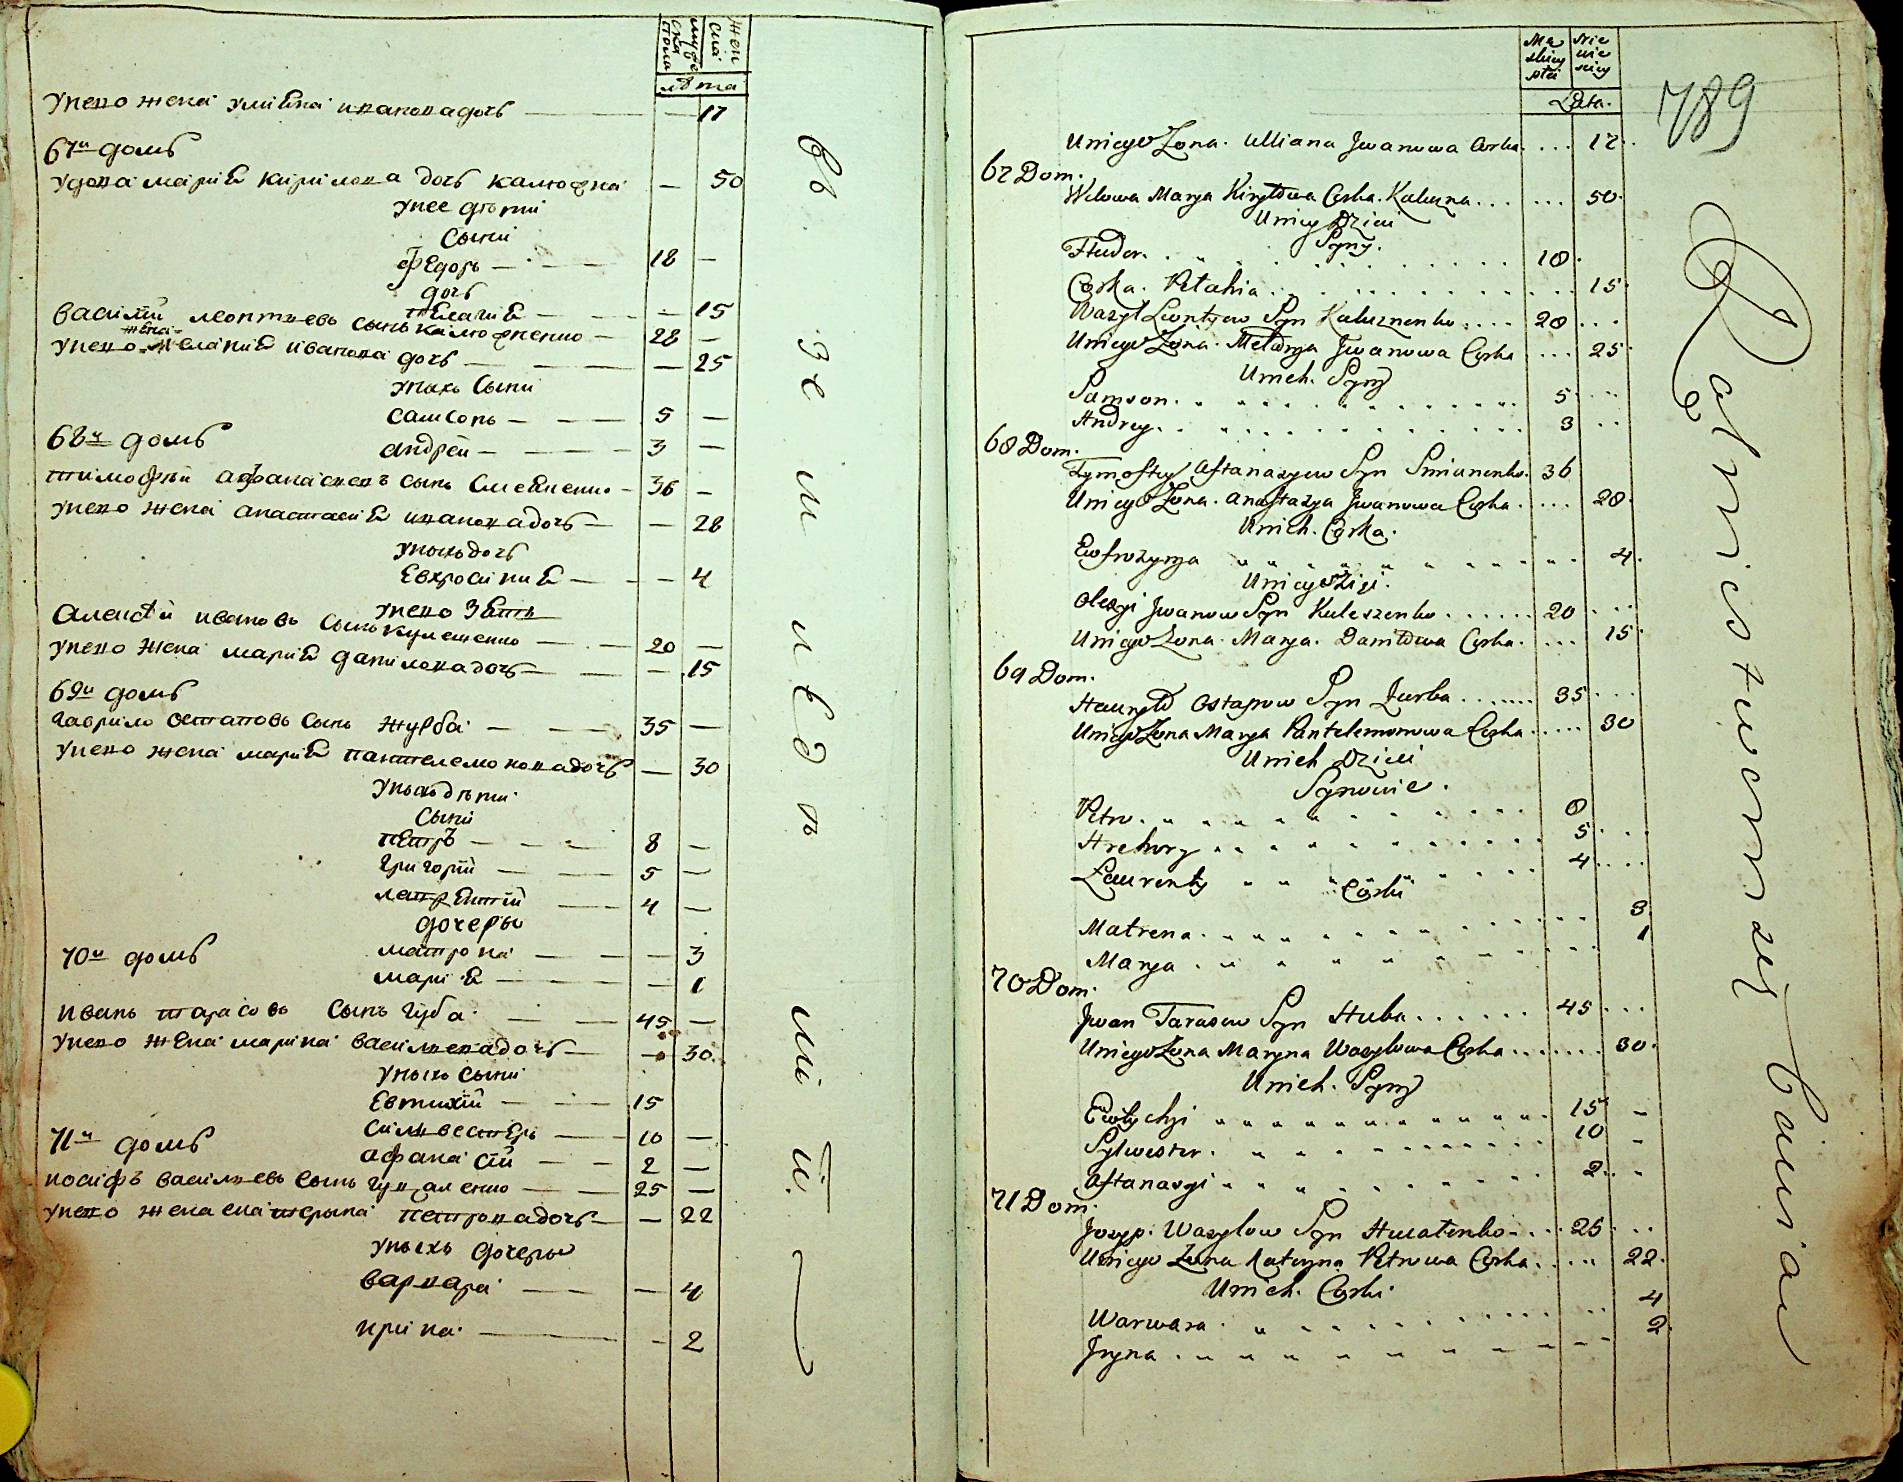 мужеска
стола
женскаі
лѣта
унего жена улиѣна ивановадочь — — 17
67й домъ
удова мариѣ кирилова дочь калюжна — 50
унее дѣти
сыни
Федоръ — — 18 —
дочь
пелагиѣ — — 15
василій леонтиевъ сынъ калюжненко — 28 —
унего жена мелапиѣ иванова дочь — — 25
унихъ сыни
самсонъ — — 5 —
68й домъ
андрей — — 3 —
тимофѣй афанасиевъ сынъ смеѣненко — 36 —
унего жена анастасиѣ ивановадочь — — 28
унихъ дочь
Евхросиниѣ — — 4
унего зѣть
алексѣй ивановъ сынъ кулешенко — 20 —
унего жена мариѣ даниловадочь — — 15
69й домъ
гаврило остаповъ сынъ журба — 35 —
унего жена мариѣ пантелемоновадочь — 30
унихъ дѣти
сыни
петръ — — 8 —
григорій — — 5 —
лаврентій — 4 —
дочеры
70й домъ
матрона — — 3
мариѣ — — 1
иванъ тарасовъ сынъ губа — 45 —
унего жена марина василиевадочь — — 30
унихъ сыни
Евтихій — — 15
силвестеръ — 10 —
71й домъ
афанасій — — 2 —
иосифъ василиевъ сынъ гуваленко — 25 —
унего жена екатерына петровадочь — — 22
унихъ дочеры
варвара — — 4
ирина — — 2
въ земли ведъ
мій.
789
Męskiey
płci
Niewieściey
Lata.
Uniego Żona. Ulliana Jwanowa Corka. ... 17.
67 Dom.
Wdowa Marya Kiryłowa Corka. Kaluzna ... ... 50.
Uniey Dzieci
Syny.
Fhedor. . . . 18.
Corka. Pelahia . . . 15.
Wazyl Leontyew Syn Kaluznenko .... 28 ...
Uniego Żona. Meładya Jwanowa Corka ... 25.
Unich. Syny
Samson. . . . 5 ...
Andrey. . . . 3 ..
68 Dom.
Tymoftey Aftanazyew Syn Smianenko. 36
Uniego Żona. Anastazya Jwanowa Corka. ... 28.
Unich. Corka.
Ewfrozyna . . . 4.
Uniego Zięć.
Olexyi Jwanow Syn Kuleszenko ...... 20 ...
Uniego Żona. Marya. Daniłowa Corka. ... 15.
69 Dom.
Hauryło Ostapow Syn Żurba ....... 35 ...
Uniego Żona Marya Pantelemonowa Corka ..... 30
Unich Dzieci
Synowie.
Petro. . . . 8
Hrehory . . . 5. ..
Ławrenty . . . 4 ....
Corki
Matrena. . . . 3.
Marya . . . 1
70 Dom.
Jwan Tarasow Syn Huba ...... 45 ...
Uniego Żona Maryna Wazylowa Corka ....... 30.
Unich. Syny
Ewtychyi . . . 15 –
Sylwester. . . . 10 –
Aftanazyi . . . 2. –
71 Dom.
Jozyp. Wazylow Syn Huwalenko ... 25 ..
Uniego Żona Kateryna Petrowa Corka .... 22.
Unich. Corki
Warwara. . . . 4
Jryna . . . 2.